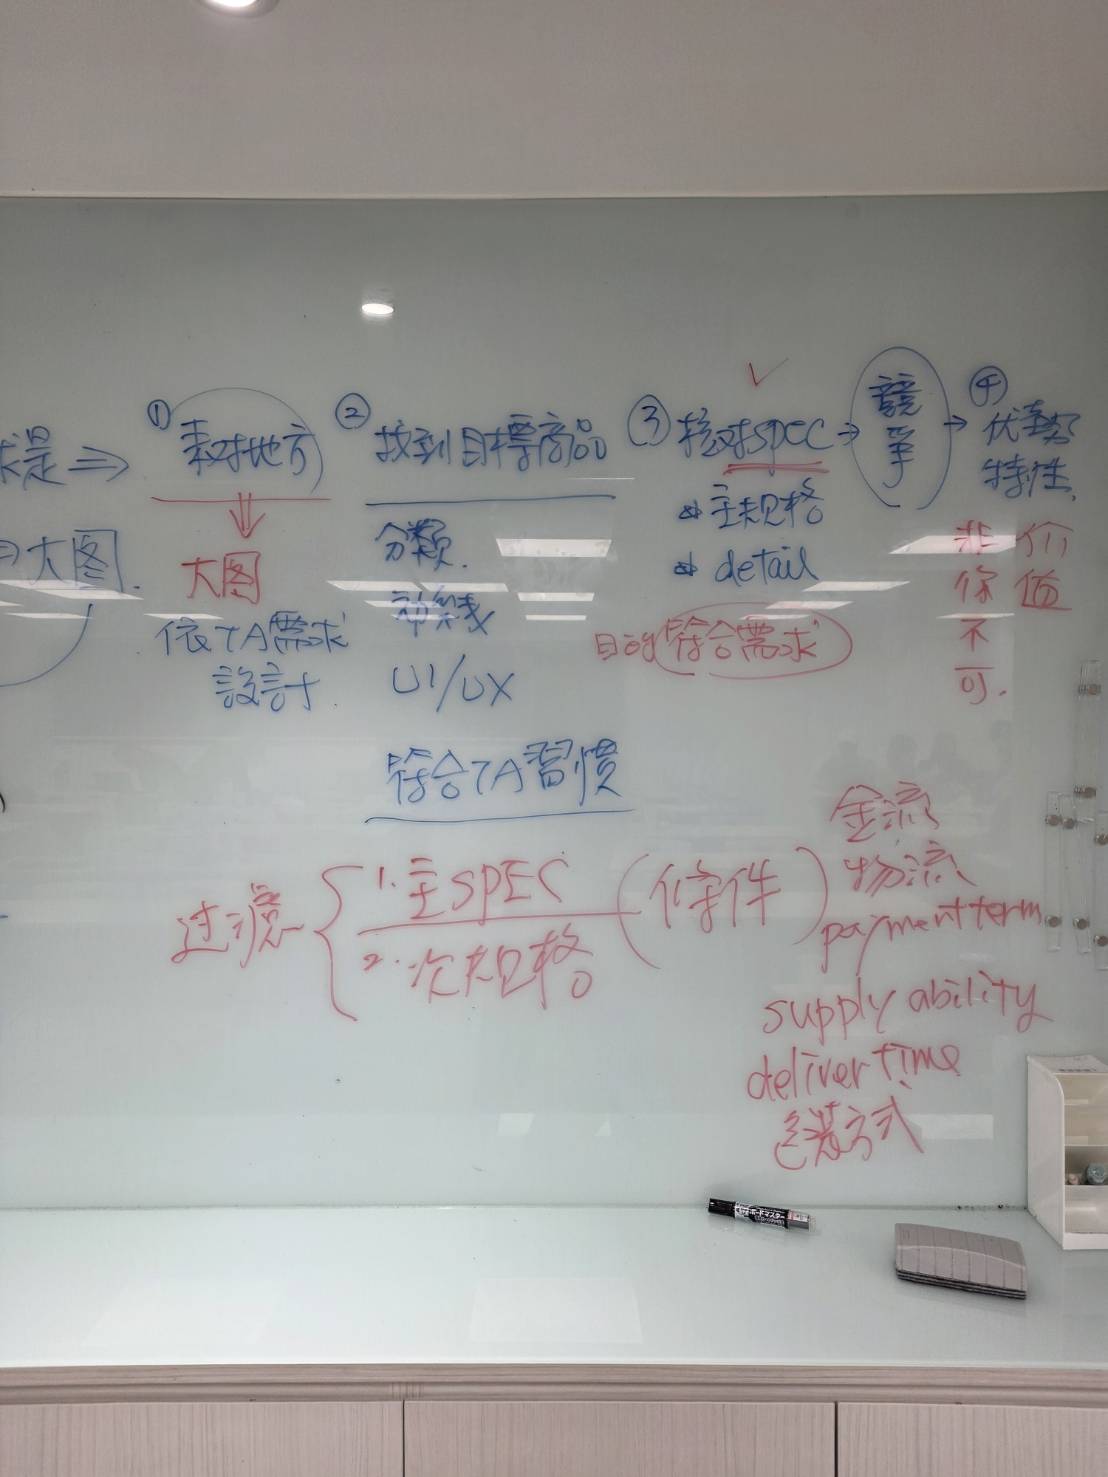 求是 ⇒
目大图.
① 來对地方
⇓
大图
依TA需求
設計.
② 找到目標商品
分類.
UI/UX
符合TA習慣
③ 核对SPEC →
主規格
detail
目的 符合需求
競爭 →
④ 优勢
特性.
非你不可.
价值
过濾 { 1. 主SPEC
2. 次規格
(條件)
金流
物流
payment term
supply ability
deliver time
包裝方式
ボードマスター